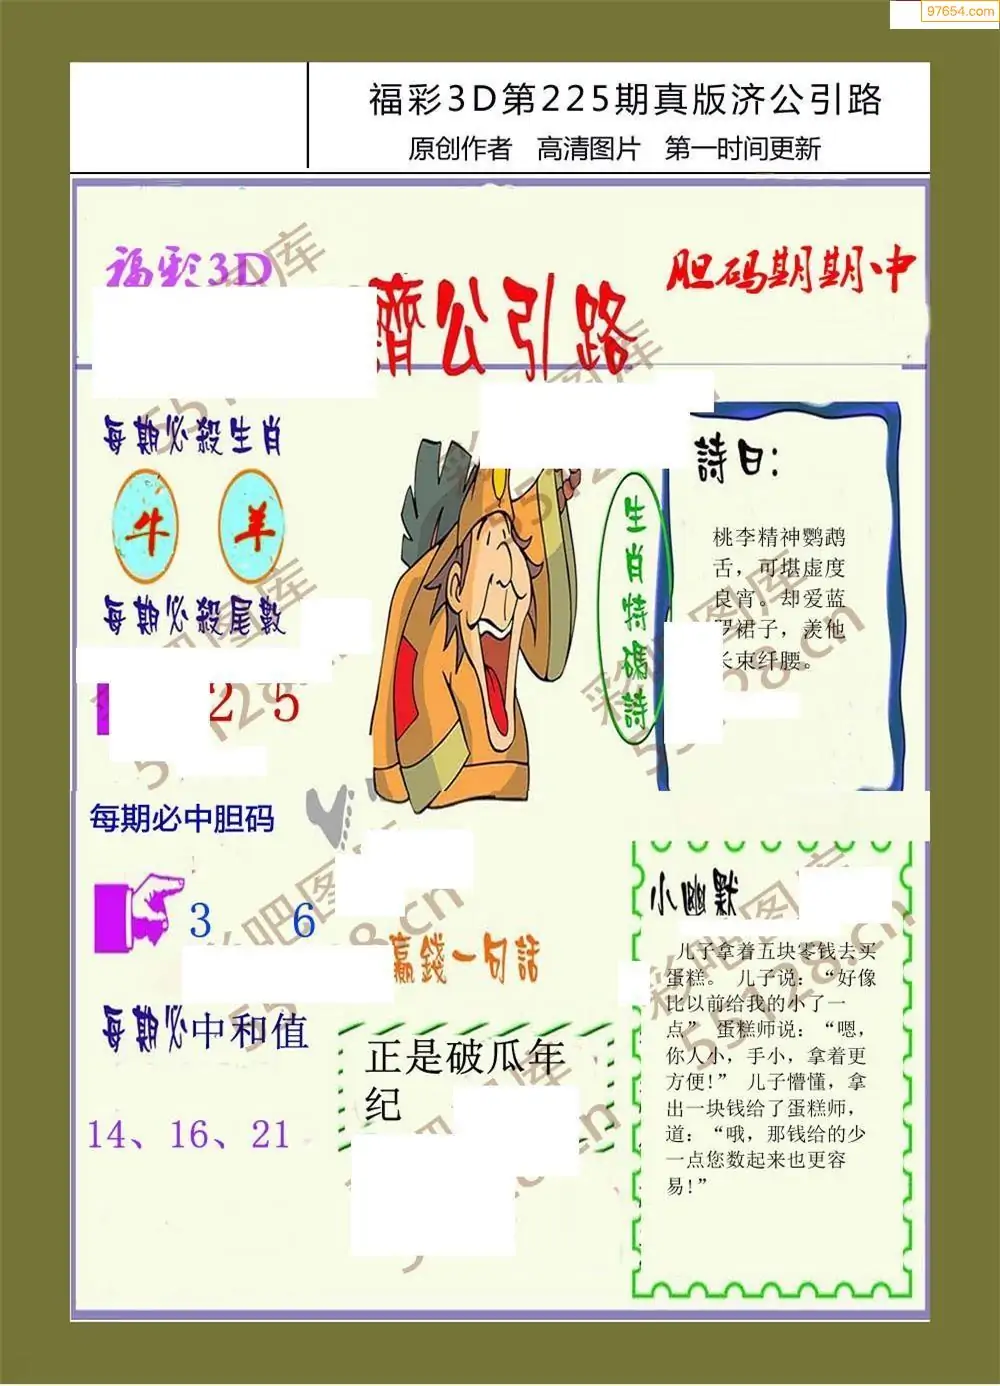 97654.com
福彩3D第225期真版济公引路
原创作者 高清图片 第一时间更新
福彩3D
胆码期期中
濟公引路
每期必殺生肖
牛 羊
每期必殺尾數
2 5
每期必中胆码
3 6
每期必中和值
14、16、21
生肖特碼詩
詩曰:
桃李精神鹦鹉
舌，可堪虚度
良宵。却爱蓝
罗裙子，羡他
长束纤腰。
赢錢一句話
正是破瓜年
纪
小幽默
儿子拿着五块零钱去买
蛋糕。 儿子说：“好像
比以前给我的小了一
点” 蛋糕师说：“嗯，
你人小，手小，拿着更
方便!” 儿子懵懂，拿
出一块钱给了蛋糕师，
道：“哦，那钱给的少
一点您数起来也更容
易!”
彩吧图库
55128.cn